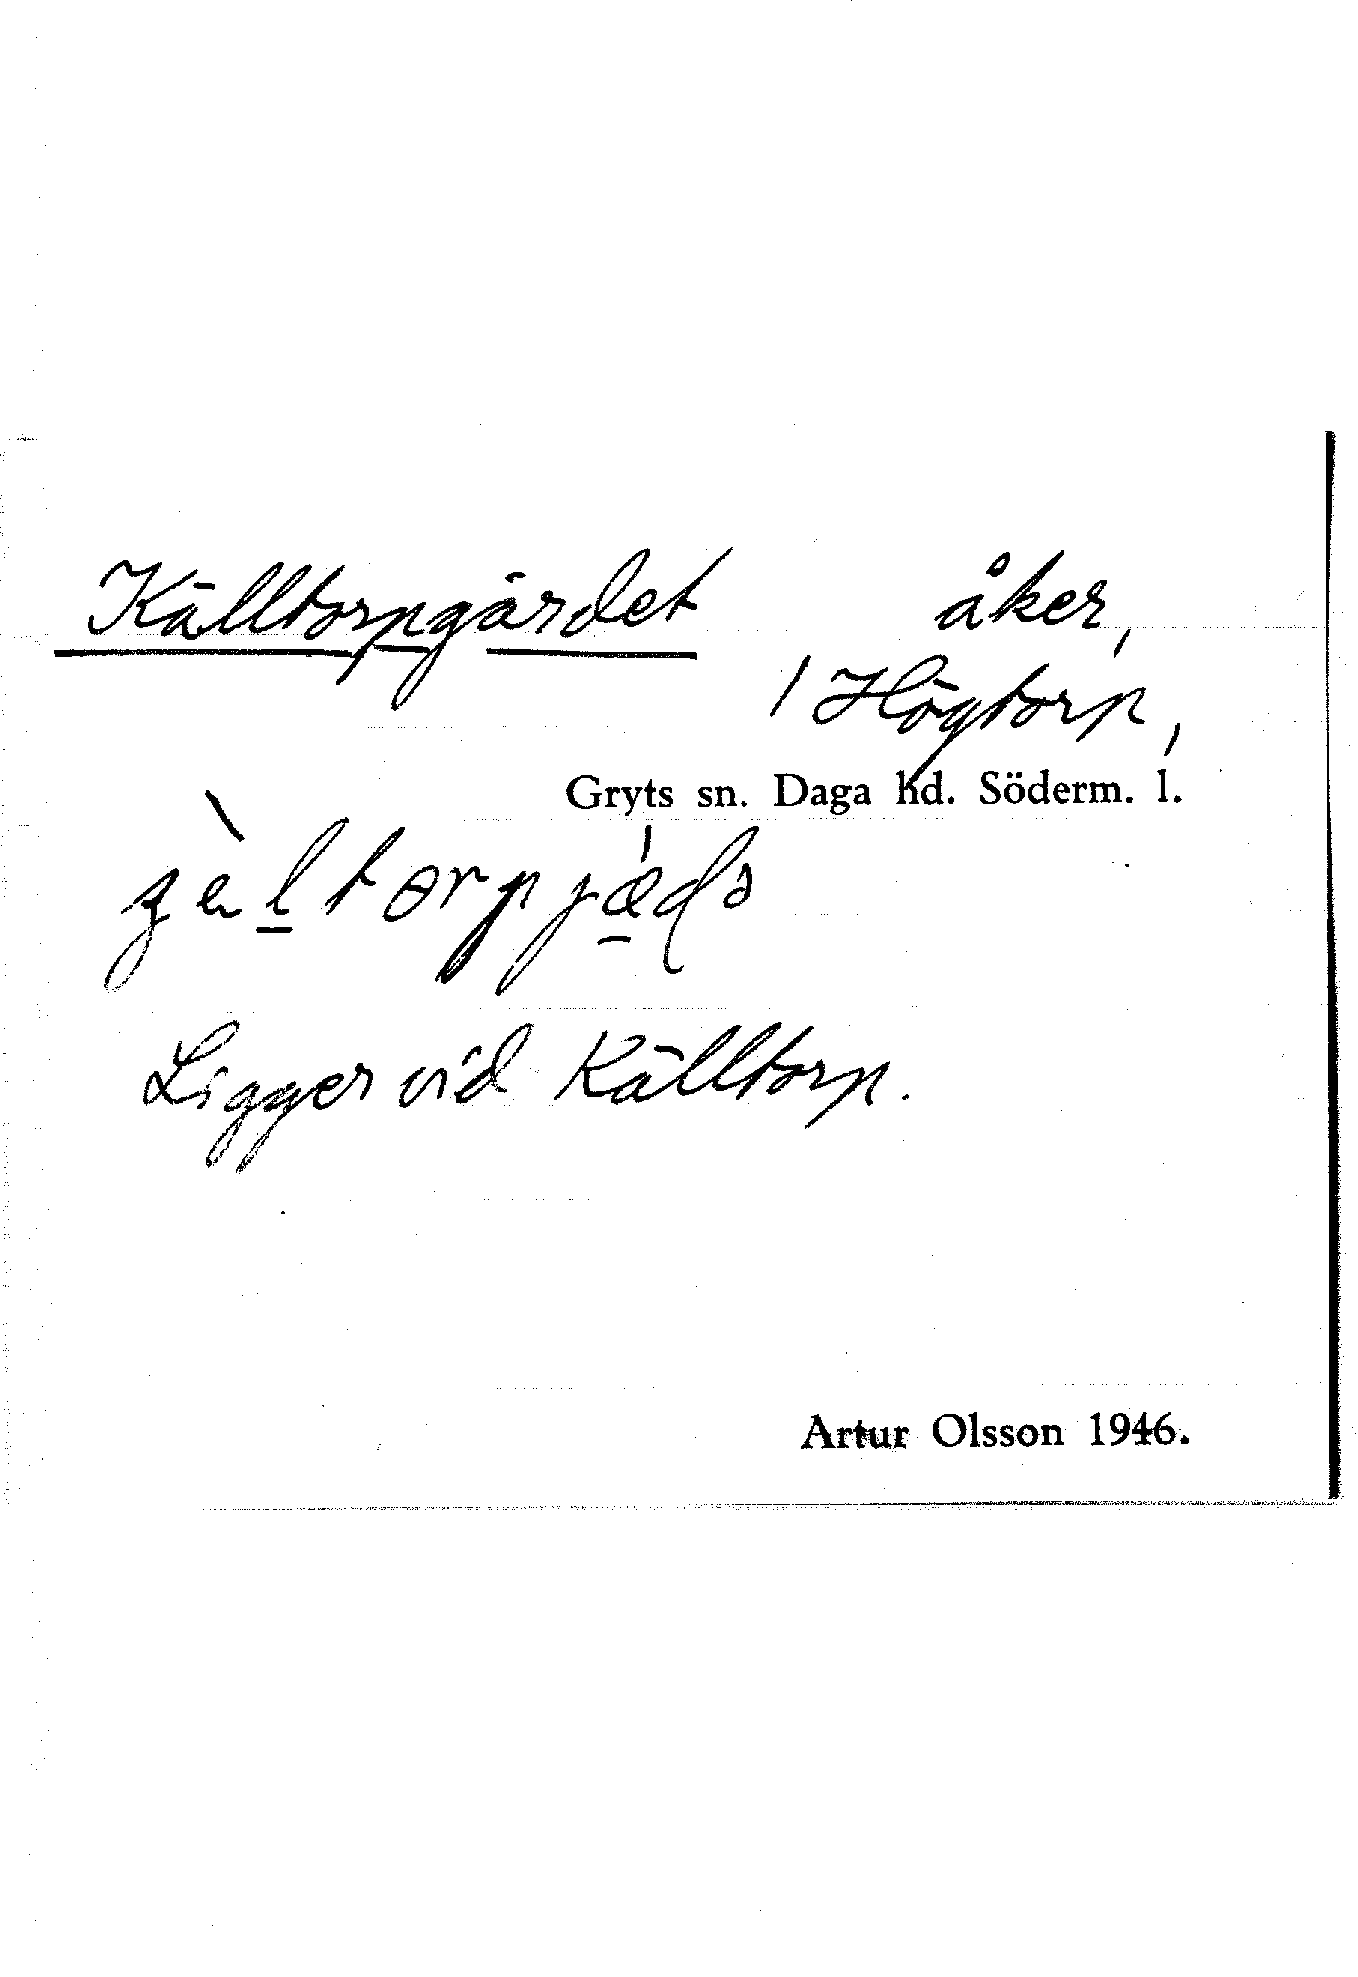 Källtorpgärdet åker,
1 Högtorp,
Gryts sn. Daga hd. Söderm. l.
Ligger vid Källtorp.
Artur Olsson 1946.